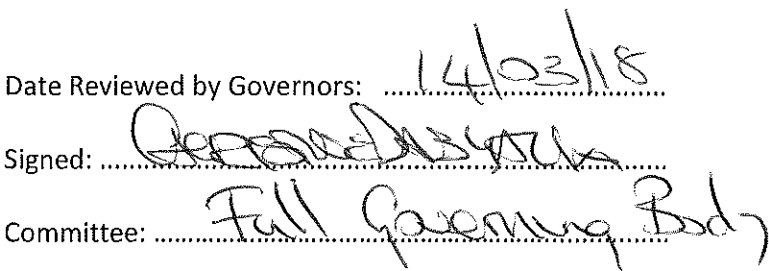 Date Reviewed by Governors: 14/03/18
Signed:
Committee: Full Governing Body